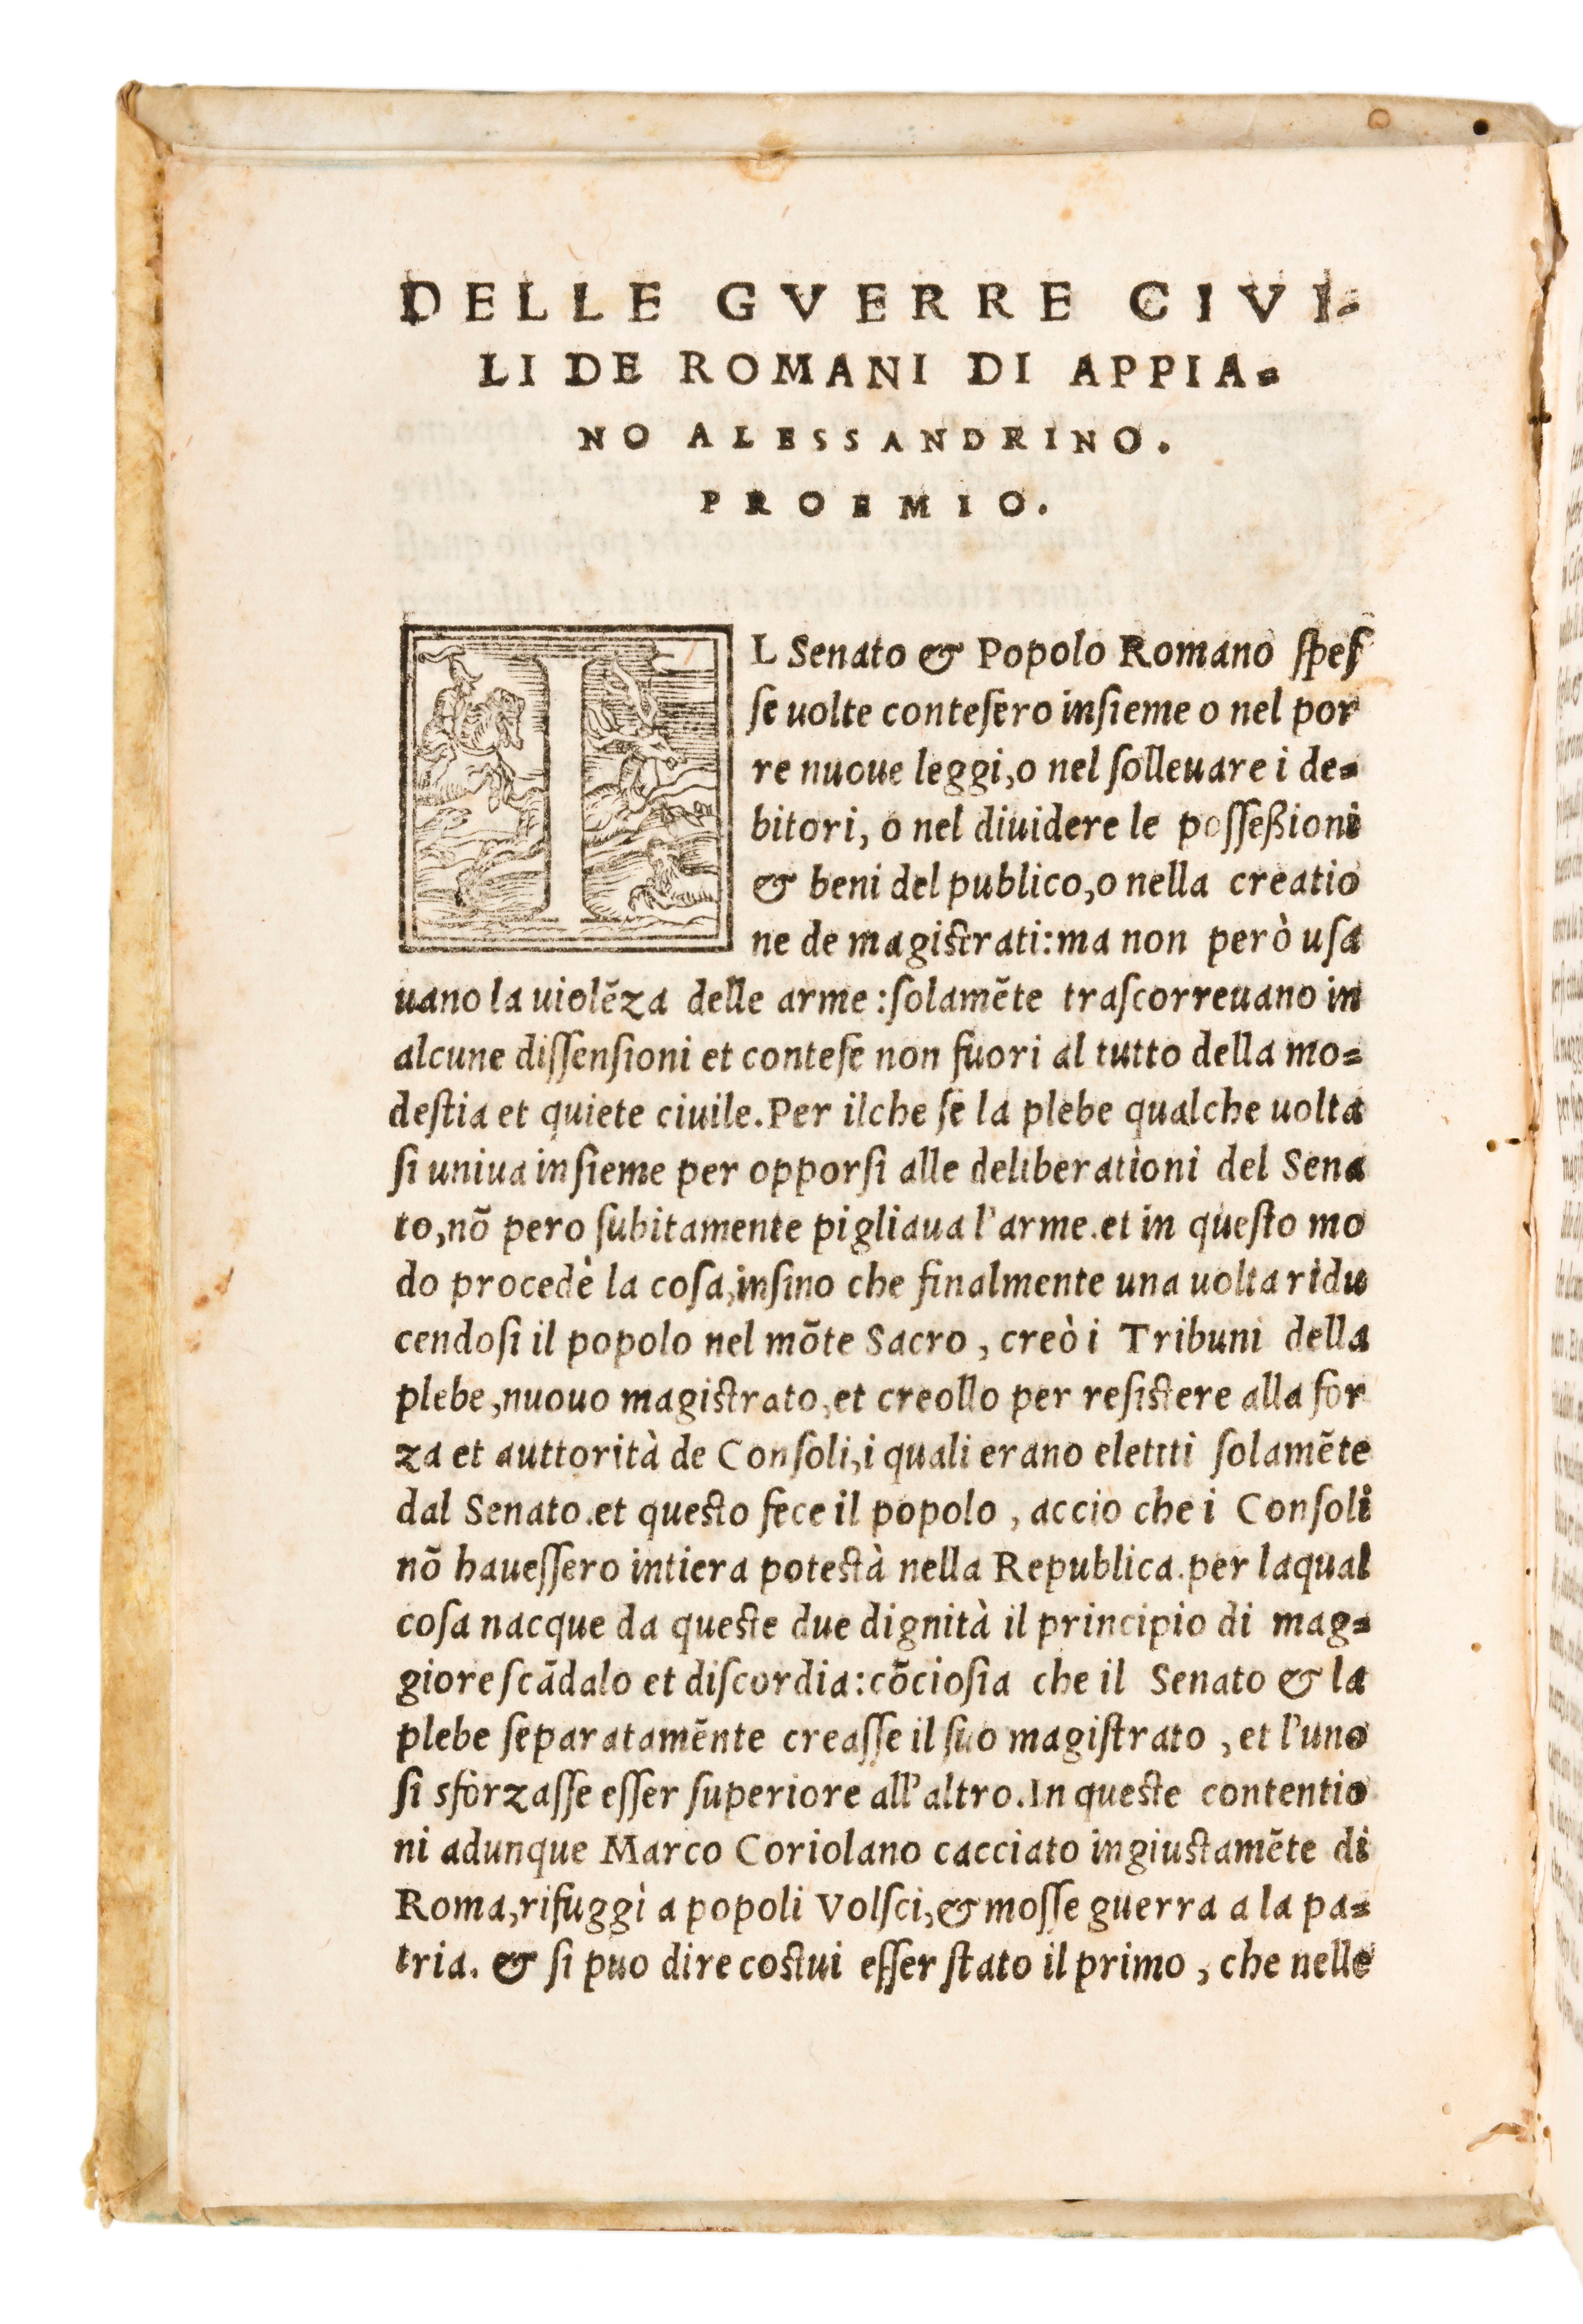 DELLE GVERRE CIVI-
LI DE ROMANI DI APPIA-
NO ALESSANDRINO.
PROEMIO.
IL Senato & Popolo Romano ſpeſ
ſe uolte conteſero inſieme o nel por
re nuoue leggi,o nel ſolleuare i de-
bitori, o nel diuidere le poſſeßioni
& beni del publico,o nella creatio
ne de magiſtrati:ma non però uſa
uano la uiolẽza delle arme :ſolamẽte traſcorreuano in
alcune diſſenſioni et conteſe non fuori al tutto della mo-
deſtia et quiete ciuile.Per ilche ſe la plebe qualche uolta
ſi uniua inſieme per opporſi alle deliberationi del Sena
to,nõ pero ſubitamente pigliaua l'arme.et in queſto mo
do procedè la coſa,inſino che finalmente una uolta ridu
cendoſi il popolo nel mõte Sacro , creò i Tribuni della
plebe,nuouo magiſtrato,et creollo per reſiſtere alla for
za et auttorità de Conſoli,i quali erano elettti ſolamẽte
dal Senato.et queſto fece il popolo , accio che i Conſoli
nõ haueſſero intiera poteſtà nella Republica.per laqual
coſa nacque da queſte due dignità il principio di mag-
giore ſcãdalo et diſcordia:cõcioſia che il Senato & la
plebe ſeparatamẽnte creaſſe il ſuo magiſtrato , et l'uno
ſi sforzaſſe eſſer ſuperiore all'altro.In queſte contentio
ni adunque Marco Coriolano cacciato ingiuſtamẽte di
Roma,rifuggì a popoli Volſci,& moſſe guerra a la pa-
tria. & ſi puo dire coſtui eſſer ſtato il primo , che nelle